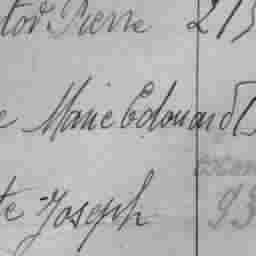 tor Pierre 215
e Marie Edouard
te Joseph 93